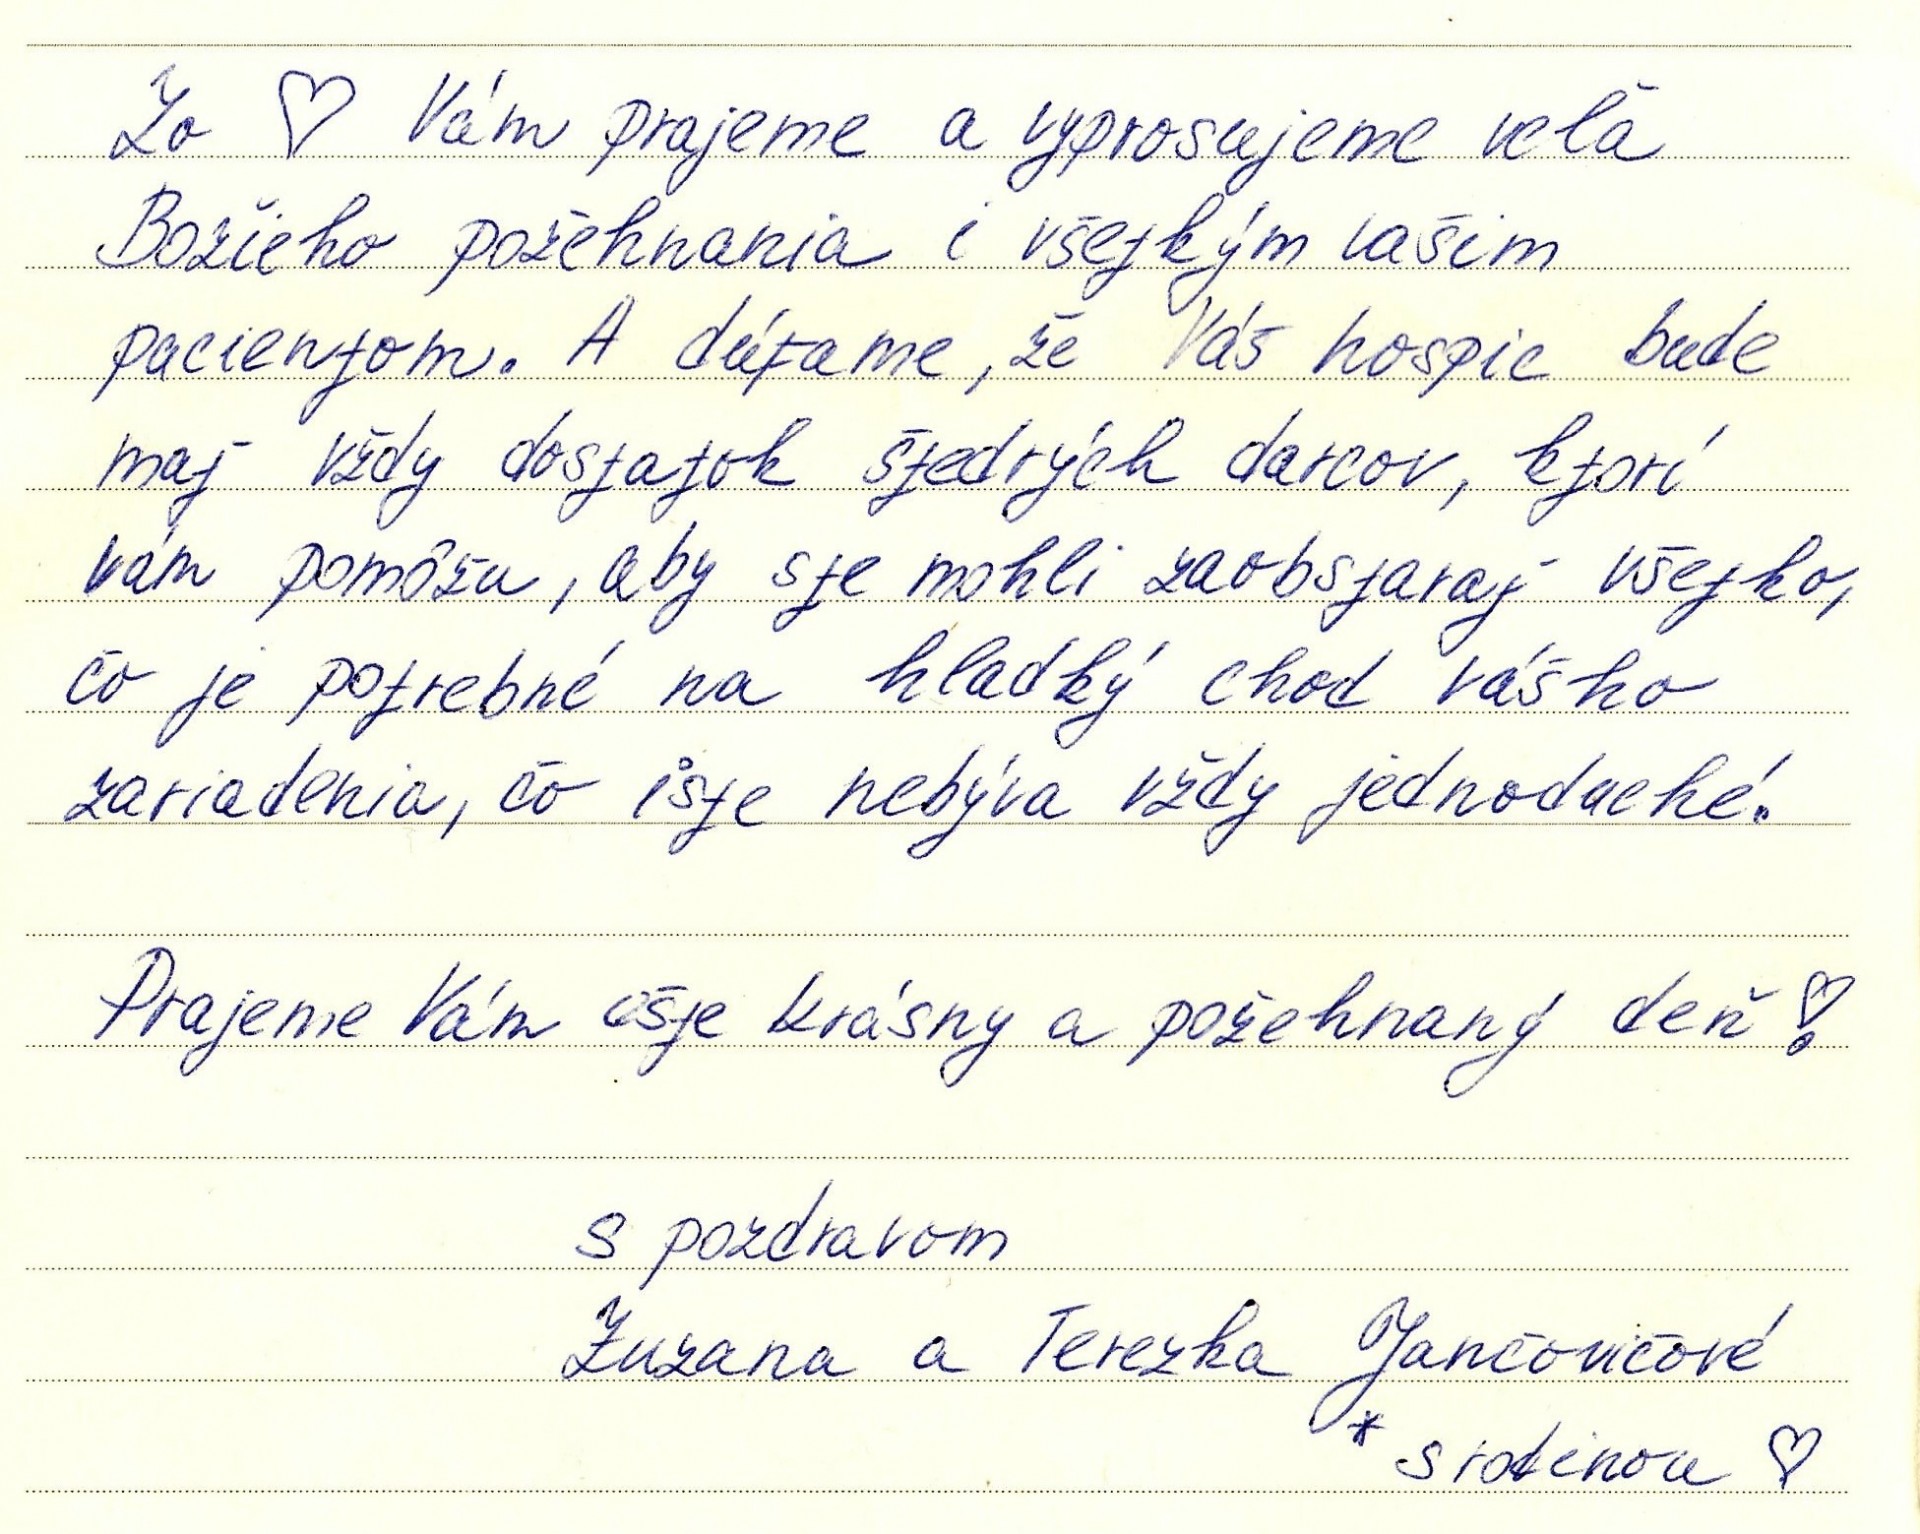 Zo ♡ Vám prajeme a vyprosujeme veľa
Božieho požehnania i všetkým vašim
pacientom. A dúfame, že Váš hospic bude
mať vždy dostatok štedrých darcov, ktorí
vám pomôžu, aby ste mohli zaobstarať všetko,
čo je potrebné na hladký chod vášho
zariadenia, čo iste nebýva vždy jednoduché.
Prajeme Vám ešte krásny a požehnaný deň ♡
s pozdravom
Zuzana a Terezka Jančovičové
* s rodinou ♡